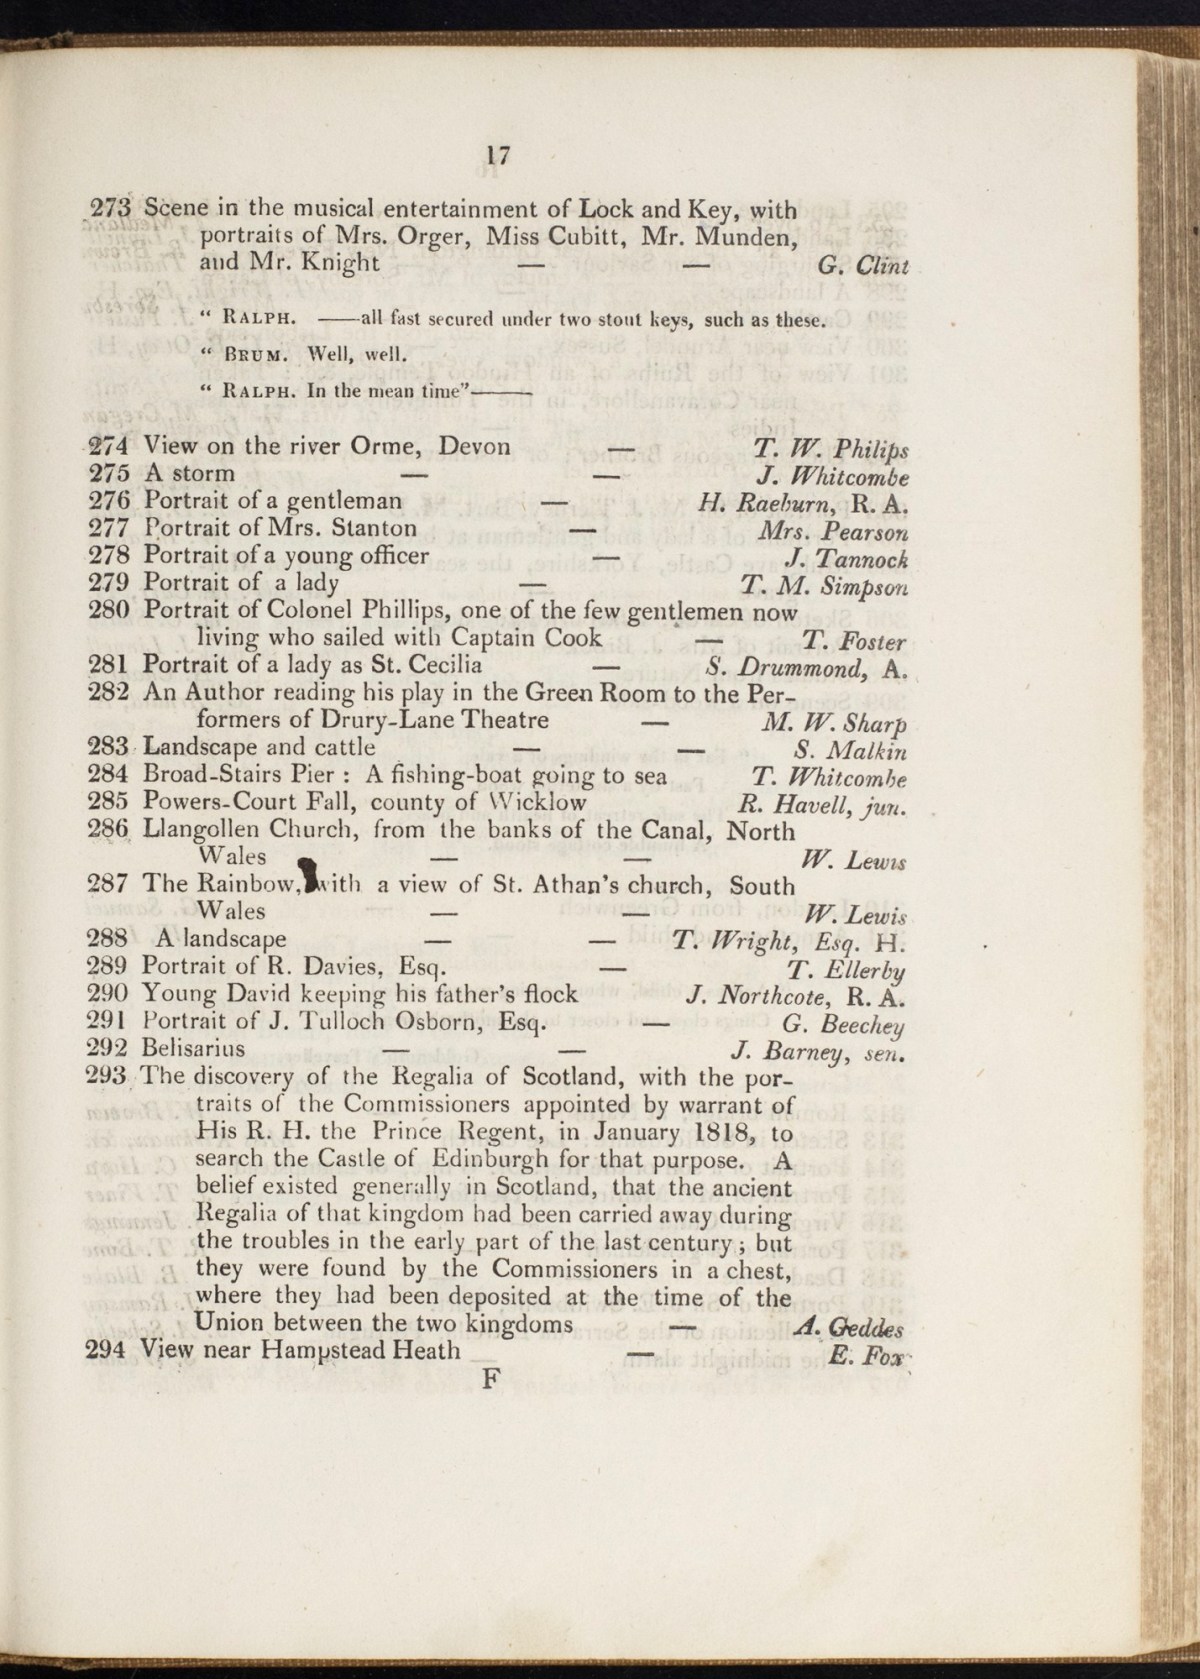 17
273 Scene in the musical entertainment of Lock and Key, with
portraits of Mrs. Orger, Miss Cubitt, Mr. Munden,
and Mr. Knight — — G. Clint
“ RALPH. ——all fast secured under two stout keys, such as these.
“ BRUM. Well, well.
“ RALPH. In the mean time”———
274 View on the river Orme, Devon — T. W. Philips
275 A storm — — J. Whitcombe
276 Portrait of a gentleman — H. Raeburn, R. A.
277 Portrait of Mrs. Stanton — Mrs. Pearson
278 Portrait of a young officer — J. Tannock
279 Portrait of a lady — T. M. Simpson
280 Portrait of Colonel Phillips, one of the few gentlemen now
living who sailed with Captain Cook — T. Foster
281 Portrait of a lady as St. Cecilia — S. Drummond, A.
282 An Author reading his play in the Green Room to the Per-
formers of Drury-Lane Theatre — M. W. Sharp
283 Landscape and cattle — — S. Malkin
284 Broad-Stairs Pier : A fishing-boat going to sea T. Whitcombe
285 Powers-Court Fall, county of Wicklow R. Havell, jun.
286 Llangollen Church, from the banks of the Canal, North
Wales — — W. Lewis
287 The Rainbow, with a view of St. Athan's church, South
Wales — — W. Lewis
288 A landscape — — T. Wright, Esq. H.
289 Portrait of R. Davies, Esq. — T. Ellerby
290 Young David keeping his father's flock J. Northcote, R. A.
291 Portrait of J. Tulloch Osborn, Esq. — G. Beechey
292 Belisarius — — J. Barney, sen.
293 The discovery of the Regalia of Scotland, with the por-
traits of the Commissioners appointed by warrant of
His R. H. the Prince Regent, in January 1818, to
search the Castle of Edinburgh for that purpose. A
belief existed generally in Scotland, that the ancient
Regalia of that kingdom had been carried away during
the troubles in the early part of the last century ; but
they were found by the Commissioners in a chest,
where they had been deposited at the time of the
Union between the two kingdoms — A. Geddes
294 View near Hampstead Heath — E. Fox
F